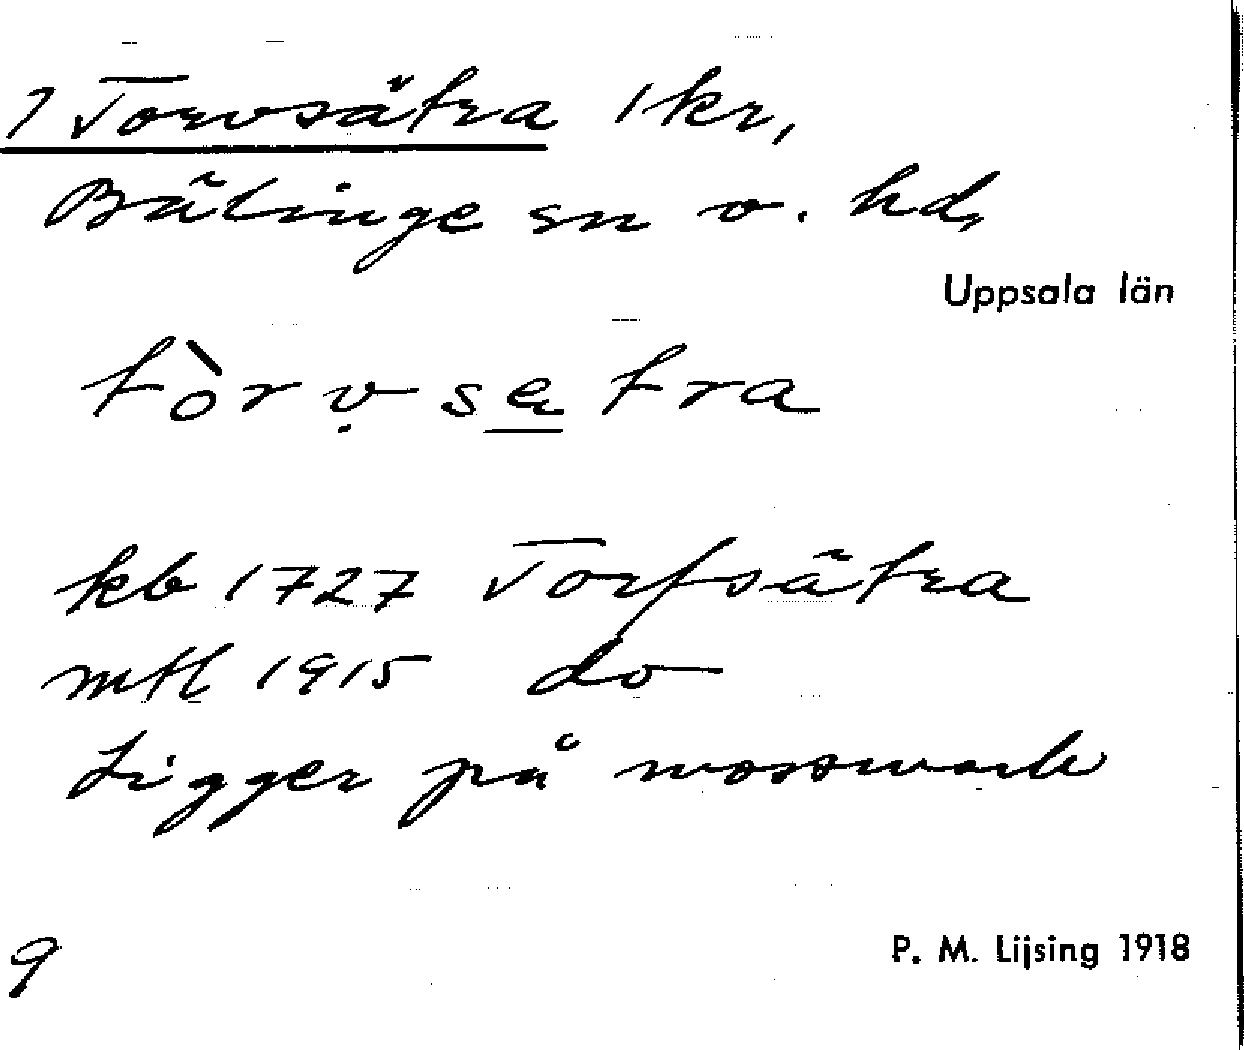 1 Torvsätra 1 kr,
Bälinge sn o. hd,
Uppsala län
tòrv̥sætra
kb 1727 Torfsätra
mtl 1915 do
Ligger på mossmark
9
P. M. Lijsing 1918